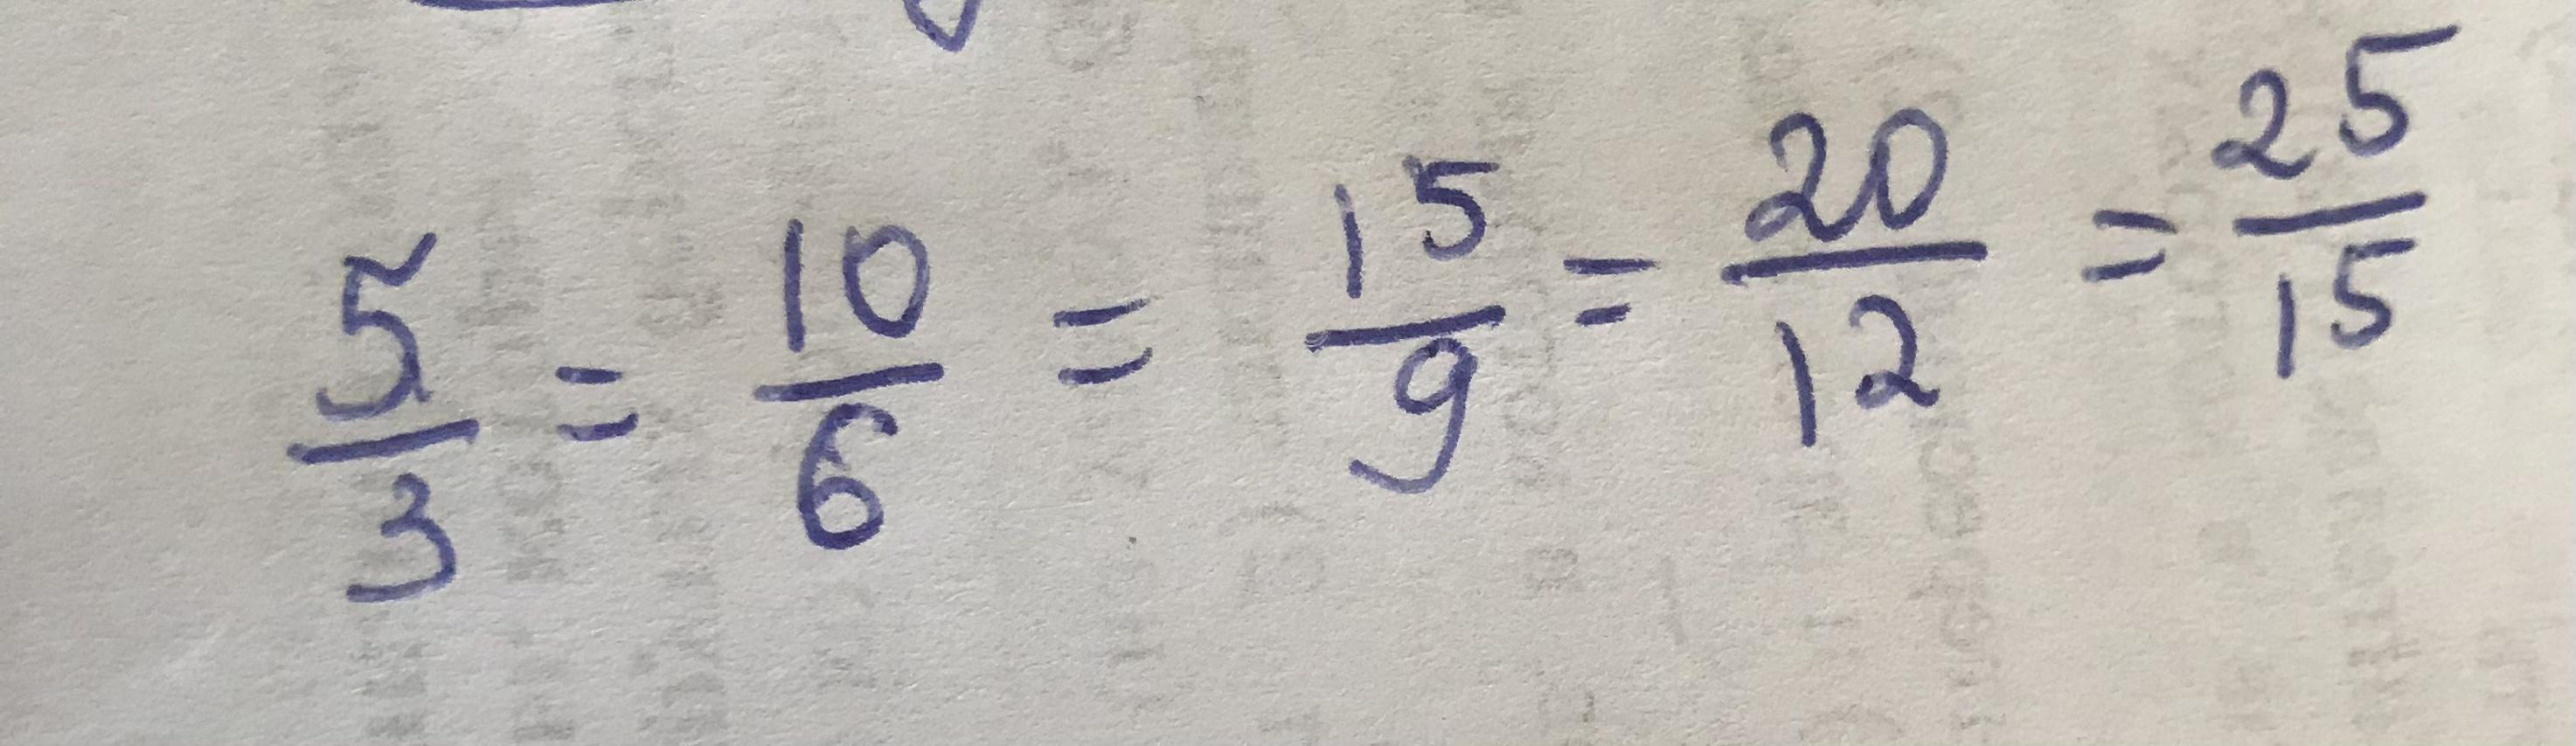 5/3 = 10/6 = 15/9 = 20/12 = 25/15